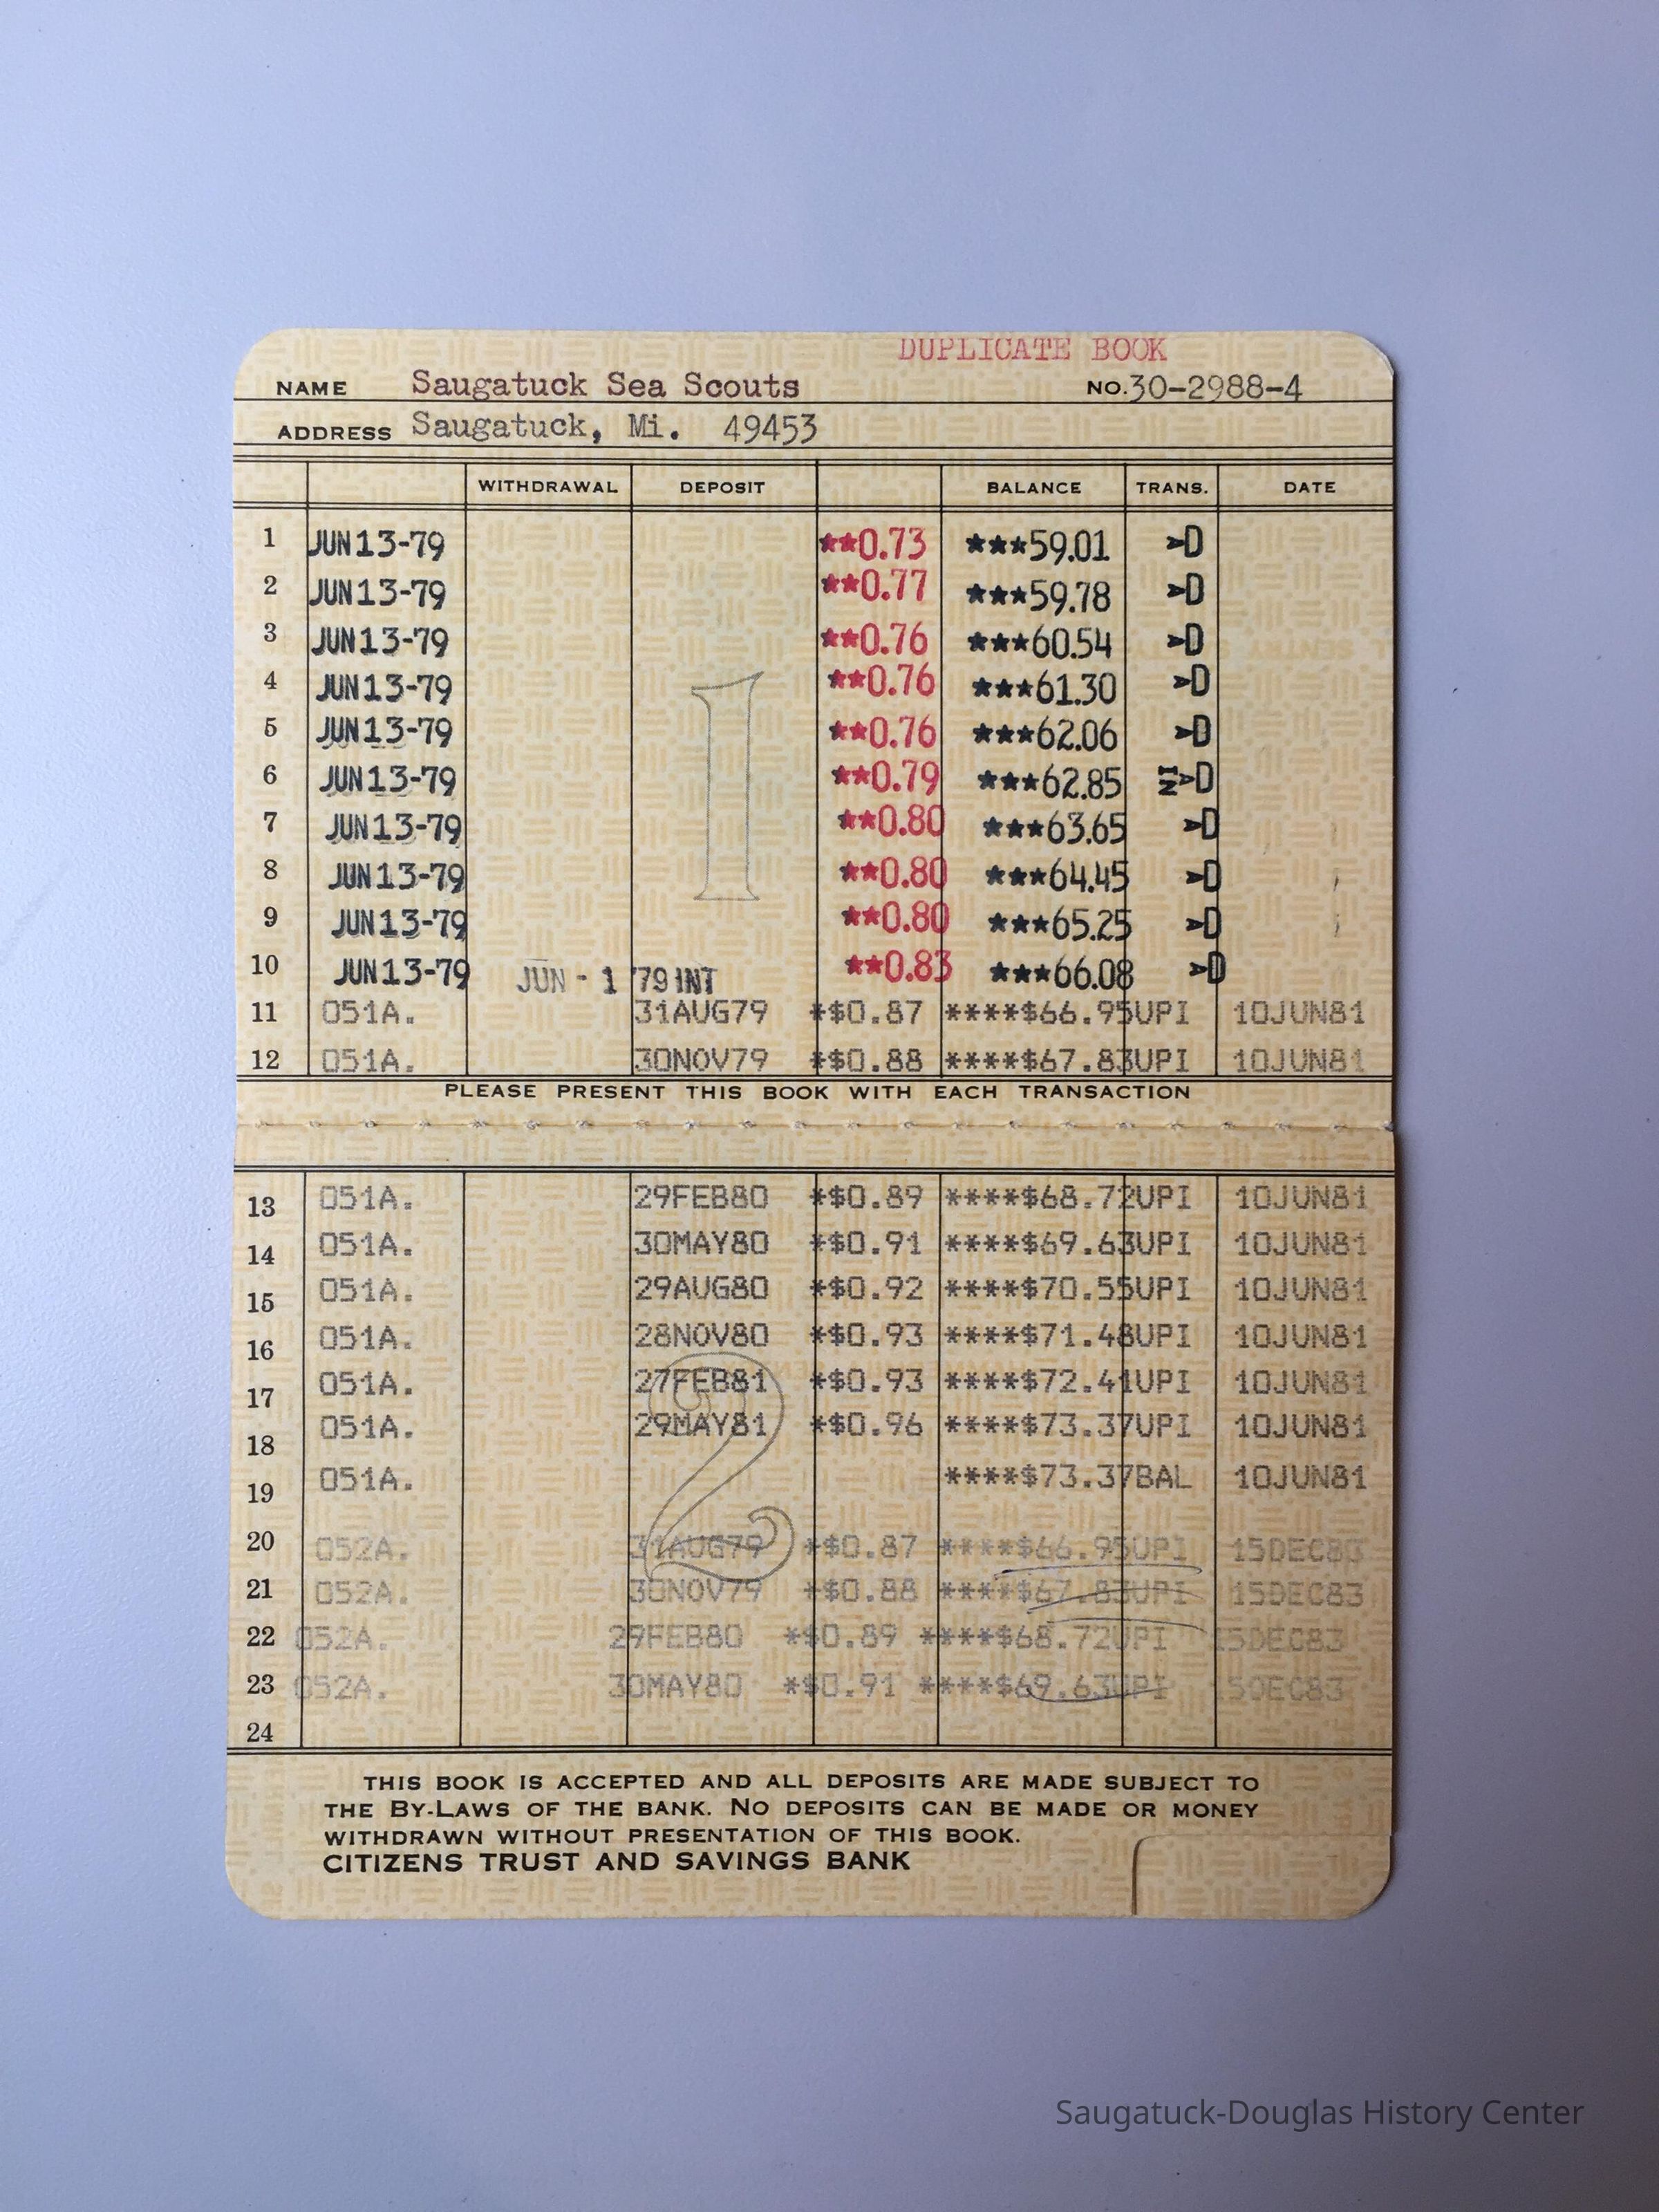 DUPLICATE BOOK
NAME Saugatuck Sea Scouts NO. 30-2988-4
ADDRESS Saugatuck, Mi. 49453
WITHDRAWAL DEPOSIT BALANCE TRANS. DATE
1 JUN 13-79 **0.73 ***59.01 >D
2 JUN 13-79 **0.77 ***59.78 >D
3 JUN 13-79 **0.76 ***60.54 >D
4 JUN 13-79 **0.76 ***61.30 >D
5 JUN 13-79 **0.76 ***62.06 >D
6 JUN 13-79 **0.79 ***62.85 >D
7 JUN 13-79 **0.80 ***63.65 >D
8 JUN 13-79 **0.80 ***64.45 >D
9 JUN 13-79 **0.80 ***65.25 >D
10 JUN 13-79 JUN - 1 79 INT **0.83 ***66.08 >D
11 051A. 31AUG79 *$0.87 ****$66.95UPI 10JUN81
12 051A. 30NOV79 *$0.88 ****$67.83UPI 10JUN81
PLEASE PRESENT THIS BOOK WITH EACH TRANSACTION
13 051A. 29FEB80 *$0.89 ****$68.72UPI 10JUN81
14 051A. 30MAY80 *$0.91 ****$69.63UPI 10JUN81
15 051A. 29AUG80 *$0.92 ****$70.55UPI 10JUN81
16 051A. 28NOV80 *$0.93 ****$71.48UPI 10JUN81
17 051A. 27FEB81 *$0.93 ****$72.41UPI 10JUN81
18 051A. 29MAY81 *$0.96 ****$73.37UPI 10JUN81
19 051A. ****$73.37BAL 10JUN81
20 052A. 31AUG79 *$0.87 ****$66.95UPI 15DEC83
21 052A. 30NOV79 *$0.88 ****$67.83UPI 15DEC83
22 052A. 29FEB80 *$0.89 ****$68.72UPI 15DEC83
23 052A. 30MAY80 *$0.91 ****$69.63UPI 15DEC83
24
THIS BOOK IS ACCEPTED AND ALL DEPOSITS ARE MADE SUBJECT TO
THE BY-LAWS OF THE BANK. NO DEPOSITS CAN BE MADE OR MONEY
WITHDRAWN WITHOUT PRESENTATION OF THIS BOOK.
CITIZENS TRUST AND SAVINGS BANK
Saugatuck-Douglas History Center